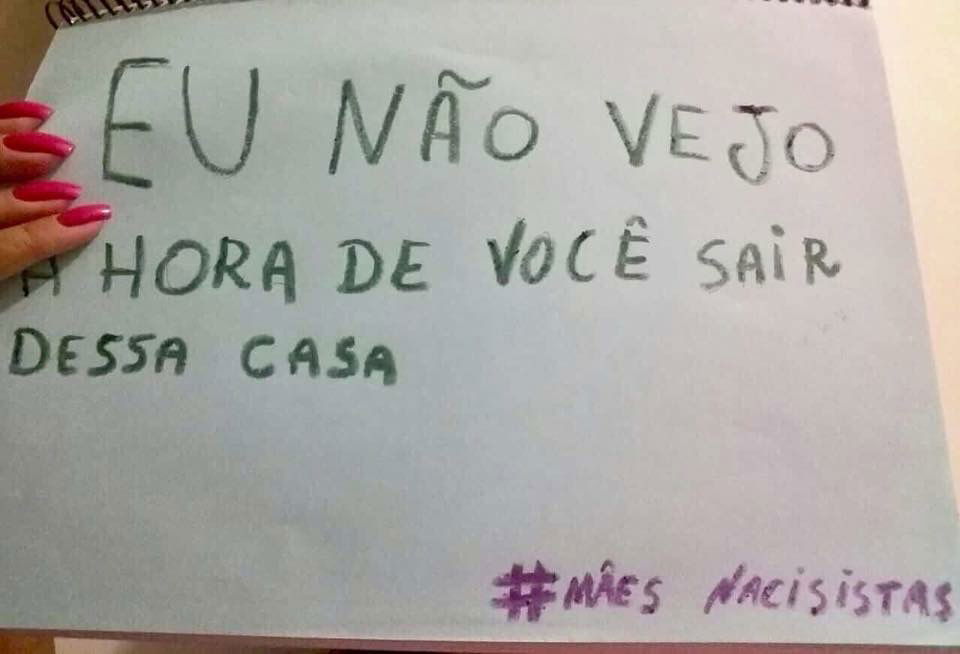 EU NÃO VEJO
A HORA DE VOCÊ SAIR
DESSA CASA
#MÃES NACISISTAS